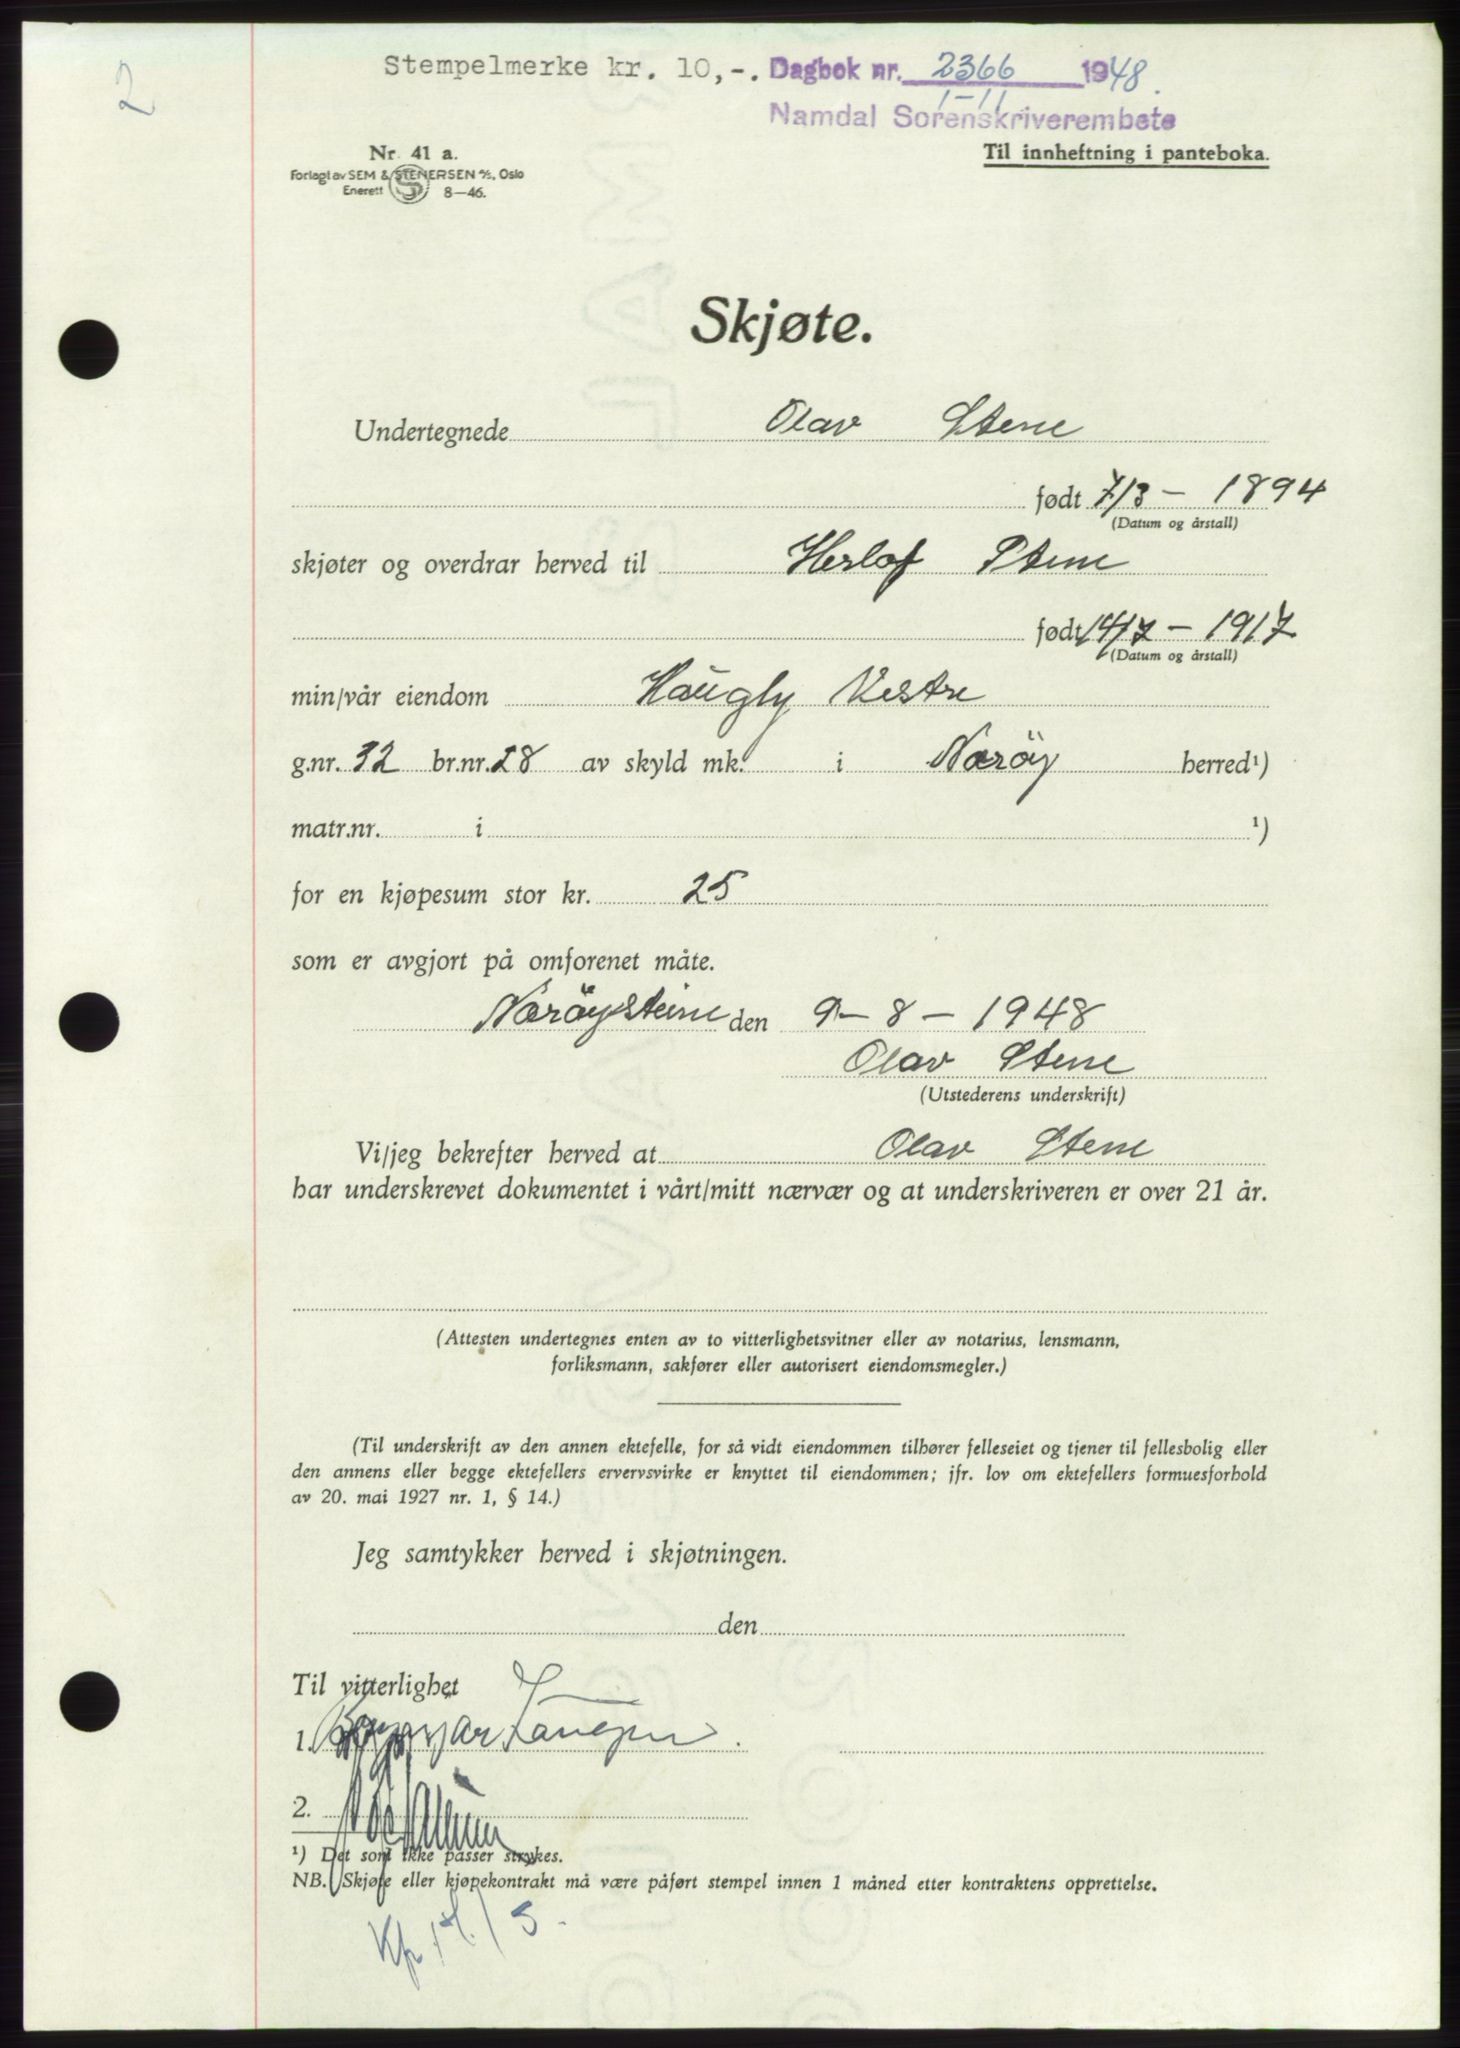 2
Stempelmerke kr. 10,-. Dagbok nr. 2366 1948.
1-11
Namdal Sorenskriverembete
Nr. 41 a.
Til innheftning i panteboka.
Forlagt av SEM & STENERSEN A/S, Oslo
Enerett S 8—46.
Skjøte.
Undertegnede Olav Stene
født 7/3 - 1894
(Datum og årstall)
skjøter og overdrar herved til Herlof Stene
født 14/7 - 1917
(Datum og årstall)
min/vår eiendom Haugly Vestre
g.nr. 32 br.nr. 28 av skyld mk. i Næröy herred¹)
matr.nr. i ¹)
for en kjøpesum stor kr. 25
som er avgjort på omforenet måte.
den 9 - 8 - 1948
Olav Stene
(Utstederens underskrift)
Vi/jeg bekrefter herved at Olav Stene
har underskrevet dokumentet i vårt/mitt nærvær og at underskriveren er over 21 år.
(Attesten undertegnes enten av to vitterlighetsvitner eller av notarius, lensmann,
forliksmann, sakfører eller autorisert eiendomsmegler.)
(Til underskrift av den annen ektefelle, for så vidt eiendommen tilhører felleseiet og tjener til fellesbolig eller
den annens eller begge ektefellers ervervsvirke er knyttet til eiendommen; jfr. lov om ektefellers formuesforhold
av 20. mai 1927 nr. 1, § 14.)
Jeg samtykker herved i skjøtningen.
den
Til vitterlighet
1.
2.
¹) Det som ikke passer strykes.
NB. Skjøte eller kjøpekontrakt må være påført stempel innen 1 måned etter kontraktens opprettelse.